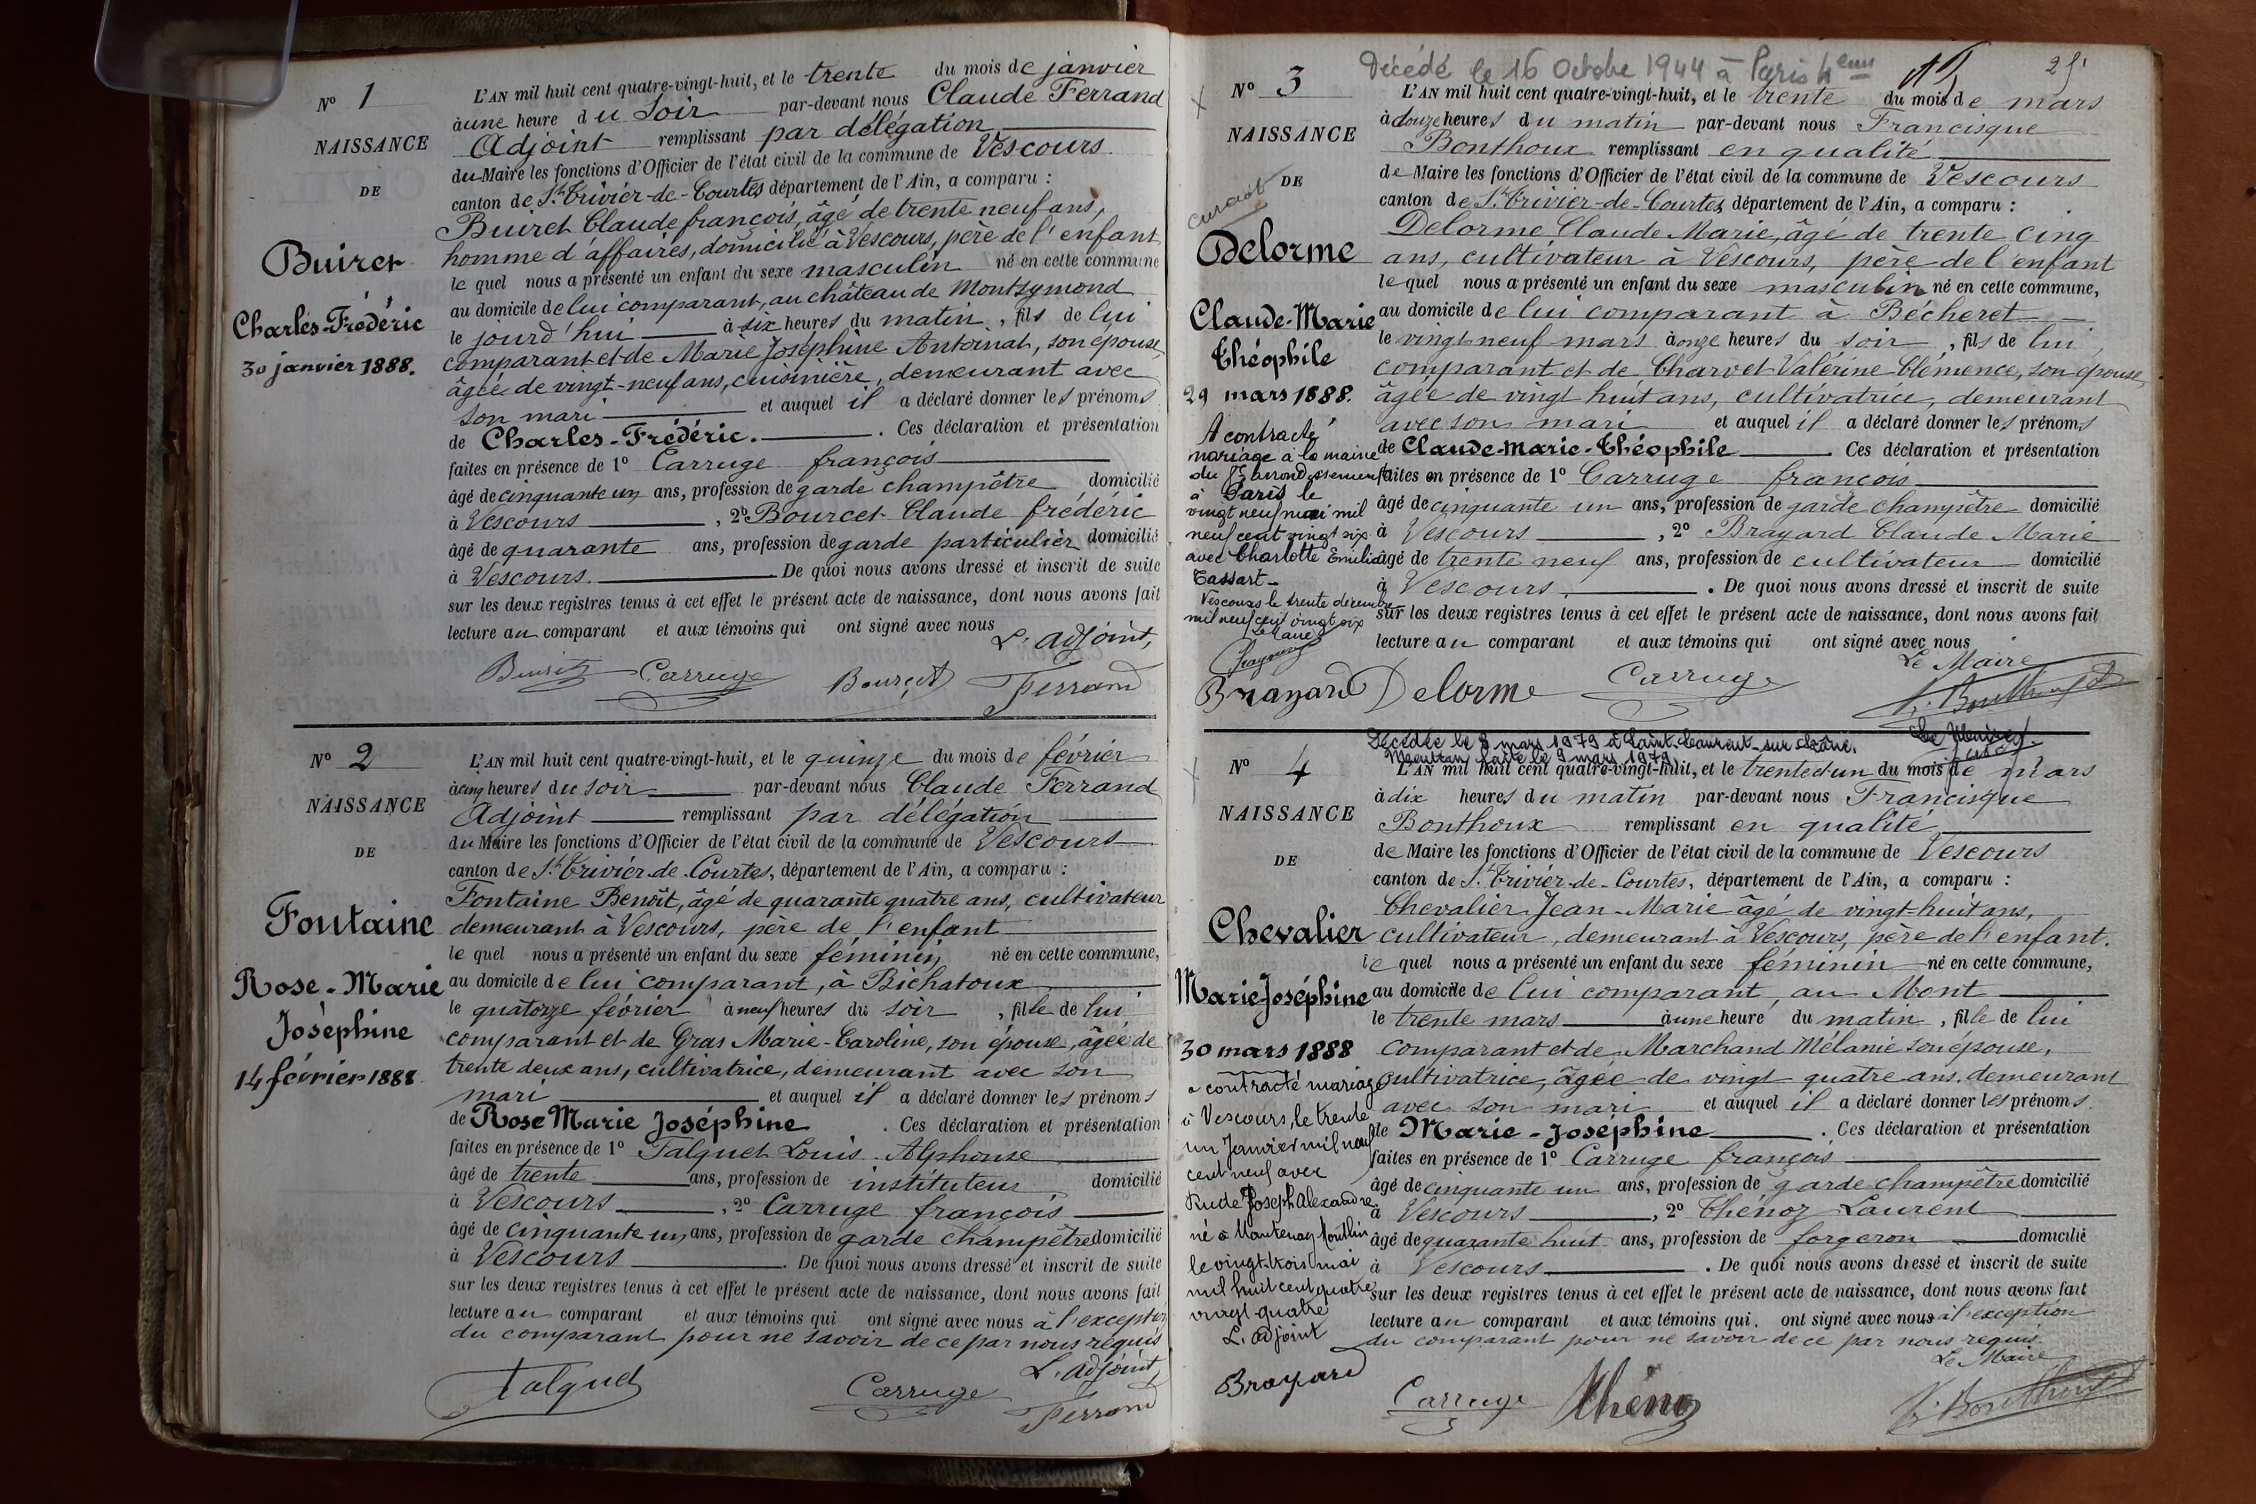 Nº 1
NAISSANCE
DE
Buiret
Charles-Frédéric
30 janvier 1888.
L'AN mil huit cent quatre-vingt-huit, et le trente du mois de janvier
à une heure du soir par-devant nous Claude Ferrand
Adjoint remplissant par délégation
du Maire les fonctions d'Officier de l'état civil de la commune de Vescours
canton de St Trivier-de-Courtes, département de l'Ain, a comparu :
Buiret Claude françois, âgé de trente neuf ans,
homme d'affaires, domicilié à Vescours, père de l'enfant
le quel nous a présenté un enfant du sexe masculin né en cette commune
au domicile de lui comparant, au château de Montsymond
le jourd'hui à six heures du matin, fils de lui
comparant et de Marie Joséphine Antoinat, son épouse,
âgée de vingt-neuf ans, cuisinière, demeurant avec
son mari et auquel il a déclaré donner les prénoms
de Charles-Frédéric. . Ces déclaration et présentation
faites en présence de 1º Carruge françois
âgé de cinquante un ans, profession de garde champêtre domicilié
à Vescours, 2º Bourcet Claude frédéric
âgé de quarante ans, profession de garde particulier domicilié
à Vescours. De quoi nous avons dressé et inscrit de suite
sur les deux registres tenus à cet effet le présent acte de naissance, dont nous avons fait
lecture au comparant et aux témoins qui ont signé avec nous
L'adjoint,
Buiret Carruge Bourcet Ferrand
Nº 2
NAISSANCE
DE
Fontaine
Rose-Marie
Joséphine
14 février 1888.
L'AN mil huit cent quatre-vingt-huit, et le quinze du mois de février
à cinq heures du soir par-devant nous Claude Ferrand
Adjoint remplissant par délégation
du Maire les fonctions d'Officier de l'état civil de la commune de Vescours
canton de St Trivier-de-Courtes, département de l'Ain, a comparu :
Fontaine Benoît, âgé de quarante quatre ans, cultivateur
demeurant à Vescours, père de l'enfant
le quel nous a présenté un enfant du sexe féminin né en cette commune,
au domicile de lui comparant, à Bichatoux
le quatorze février à neuf heures du soir, fille de lui
comparant et de Gras Marie-Caroline, son épouse, âgée de
trente deux ans, cultivatrice, demeurant avec son
mari et auquel il a déclaré donner les prénoms
de Rose Marie Joséphine . Ces déclaration et présentation
faites en présence de 1º Falquet Louis Alphonse
âgé de trente ans, profession de instituteur domicilié
à Vescours, 2º Carruge françois
âgé de cinquante un ans, profession de garde champêtre domicilié
à Vescours. De quoi nous avons dressé et inscrit de suite
sur les deux registres tenus à cet effet le présent acte de naissance, dont nous avons fait
lecture au comparant et aux témoins qui ont signé avec nous à l'exception
du comparant pour ne savoir de ce par nous requis
L'adjoint
Falquet Carruge Ferrand
Décédé le 16 Octobre 1944 à Paris 4eme
25
Nº 3
NAISSANCE
DE
Delorme
Claude-Marie
Théophile
29 mars 1888.
A contracté
mariage à la mairie
à Paris le
vingt neuf mai mil
neuf cent vingt six
avec Charlotte Emilia
Tassart
Vescours le trente décembre
mil neuf cent vingt six
Le Maire
L'AN mil huit cent quatre-vingt-huit, et le trente du mois de mars
à douze heures du matin par-devant nous Francisque
Bonthoux remplissant en qualité
de Maire les fonctions d'Officier de l'état civil de la commune de Vescours
canton de St Trivier-de-Courtes, département de l'Ain, a comparu :
Delorme Claude Marie, âgé de trente cinq
ans, cultivateur à Vescours, père de l'enfant
le quel nous a présenté un enfant du sexe masculin né en cette commune,
au domicile de lui comparant à Bécheret
le vingt neuf mars à onze heures du soir, fils de lui
comparant et de Charvet Valérine Clémence, son épouse,
âgée de vingt huit ans, cultivatrice, demeurant
avec son mari et auquel il a déclaré donner les prénoms
de Claude-Marie-Théophile. Ces déclaration et présentation
faites en présence de 1º Carruge françois
âgé de cinquante un ans, profession de garde champêtre domicilié
à Vescours, 2º Brayard Claude Marie
âgé de trente neuf ans, profession de cultivateur domicilié
à Vescours. De quoi nous avons dressé et inscrit de suite
sur les deux registres tenus à cet effet le présent acte de naissance, dont nous avons fait
lecture au comparant et aux témoins qui ont signé avec nous
Le Maire
Brayard Delorme Carruge F. Bonthoux
Décédée le 8 mars 1979 à Saint-Laurent-sur-Saône.
Mention faite le 9 mars 1979
Le Maire,
Nº 4
NAISSANCE
DE
Chevalier
Marie Joséphine
30 mars 1888
a contracté mariage
à Vescours, le trente
un Janvier mil neuf
cent neuf avec
Rude Joseph Alexandre
né à Mantenay Montlin
le vingt-trois mai
mil huit cent quatre
vingt quatre
L'adjoint
Brayard
L'AN mil huit cent quatre-vingt-huit, et le trente et un du mois de mars
à dix heures du matin par-devant nous Francisque
Bonthoux remplissant en qualité
de Maire les fonctions d'Officier de l'état civil de la commune de Vescours
canton de St Trivier-de-Courtes, département de l'Ain, a comparu :
Chevalier Jean-Marie âgé de vingt-huit ans,
cultivateur, demeurant à Vescours, père de l'enfant.
le quel nous a présenté un enfant du sexe féminin né en cette commune,
au domicile de lui comparant, au Mont
le trente mars à une heure du matin, fille de lui
comparant et de Marchand Mélanie son épouse,
cultivatrice, âgée de vingt quatre ans, demeurant
avec son mari et auquel il a déclaré donner les prénoms
de Marie-Josephine. Ces déclaration et présentation
faites en présence de 1º Carruge françois
âgé de cinquante un ans, profession de garde champêtre domicilié
à Vescours, 2º Thénoz Laurent
âgé de quarante huit ans, profession de forgeron domicilié
à Vescours. De quoi nous avons dressé et inscrit de suite
sur les deux registres tenus à cet effet le présent acte de naissance, dont nous avons fait
lecture au comparant et aux témoins qui ont signé avec nous à l'exception
du comparant pour ne savoir de ce par nous requis.
Le Maire
Carruge Thénoz F. Bonthoux